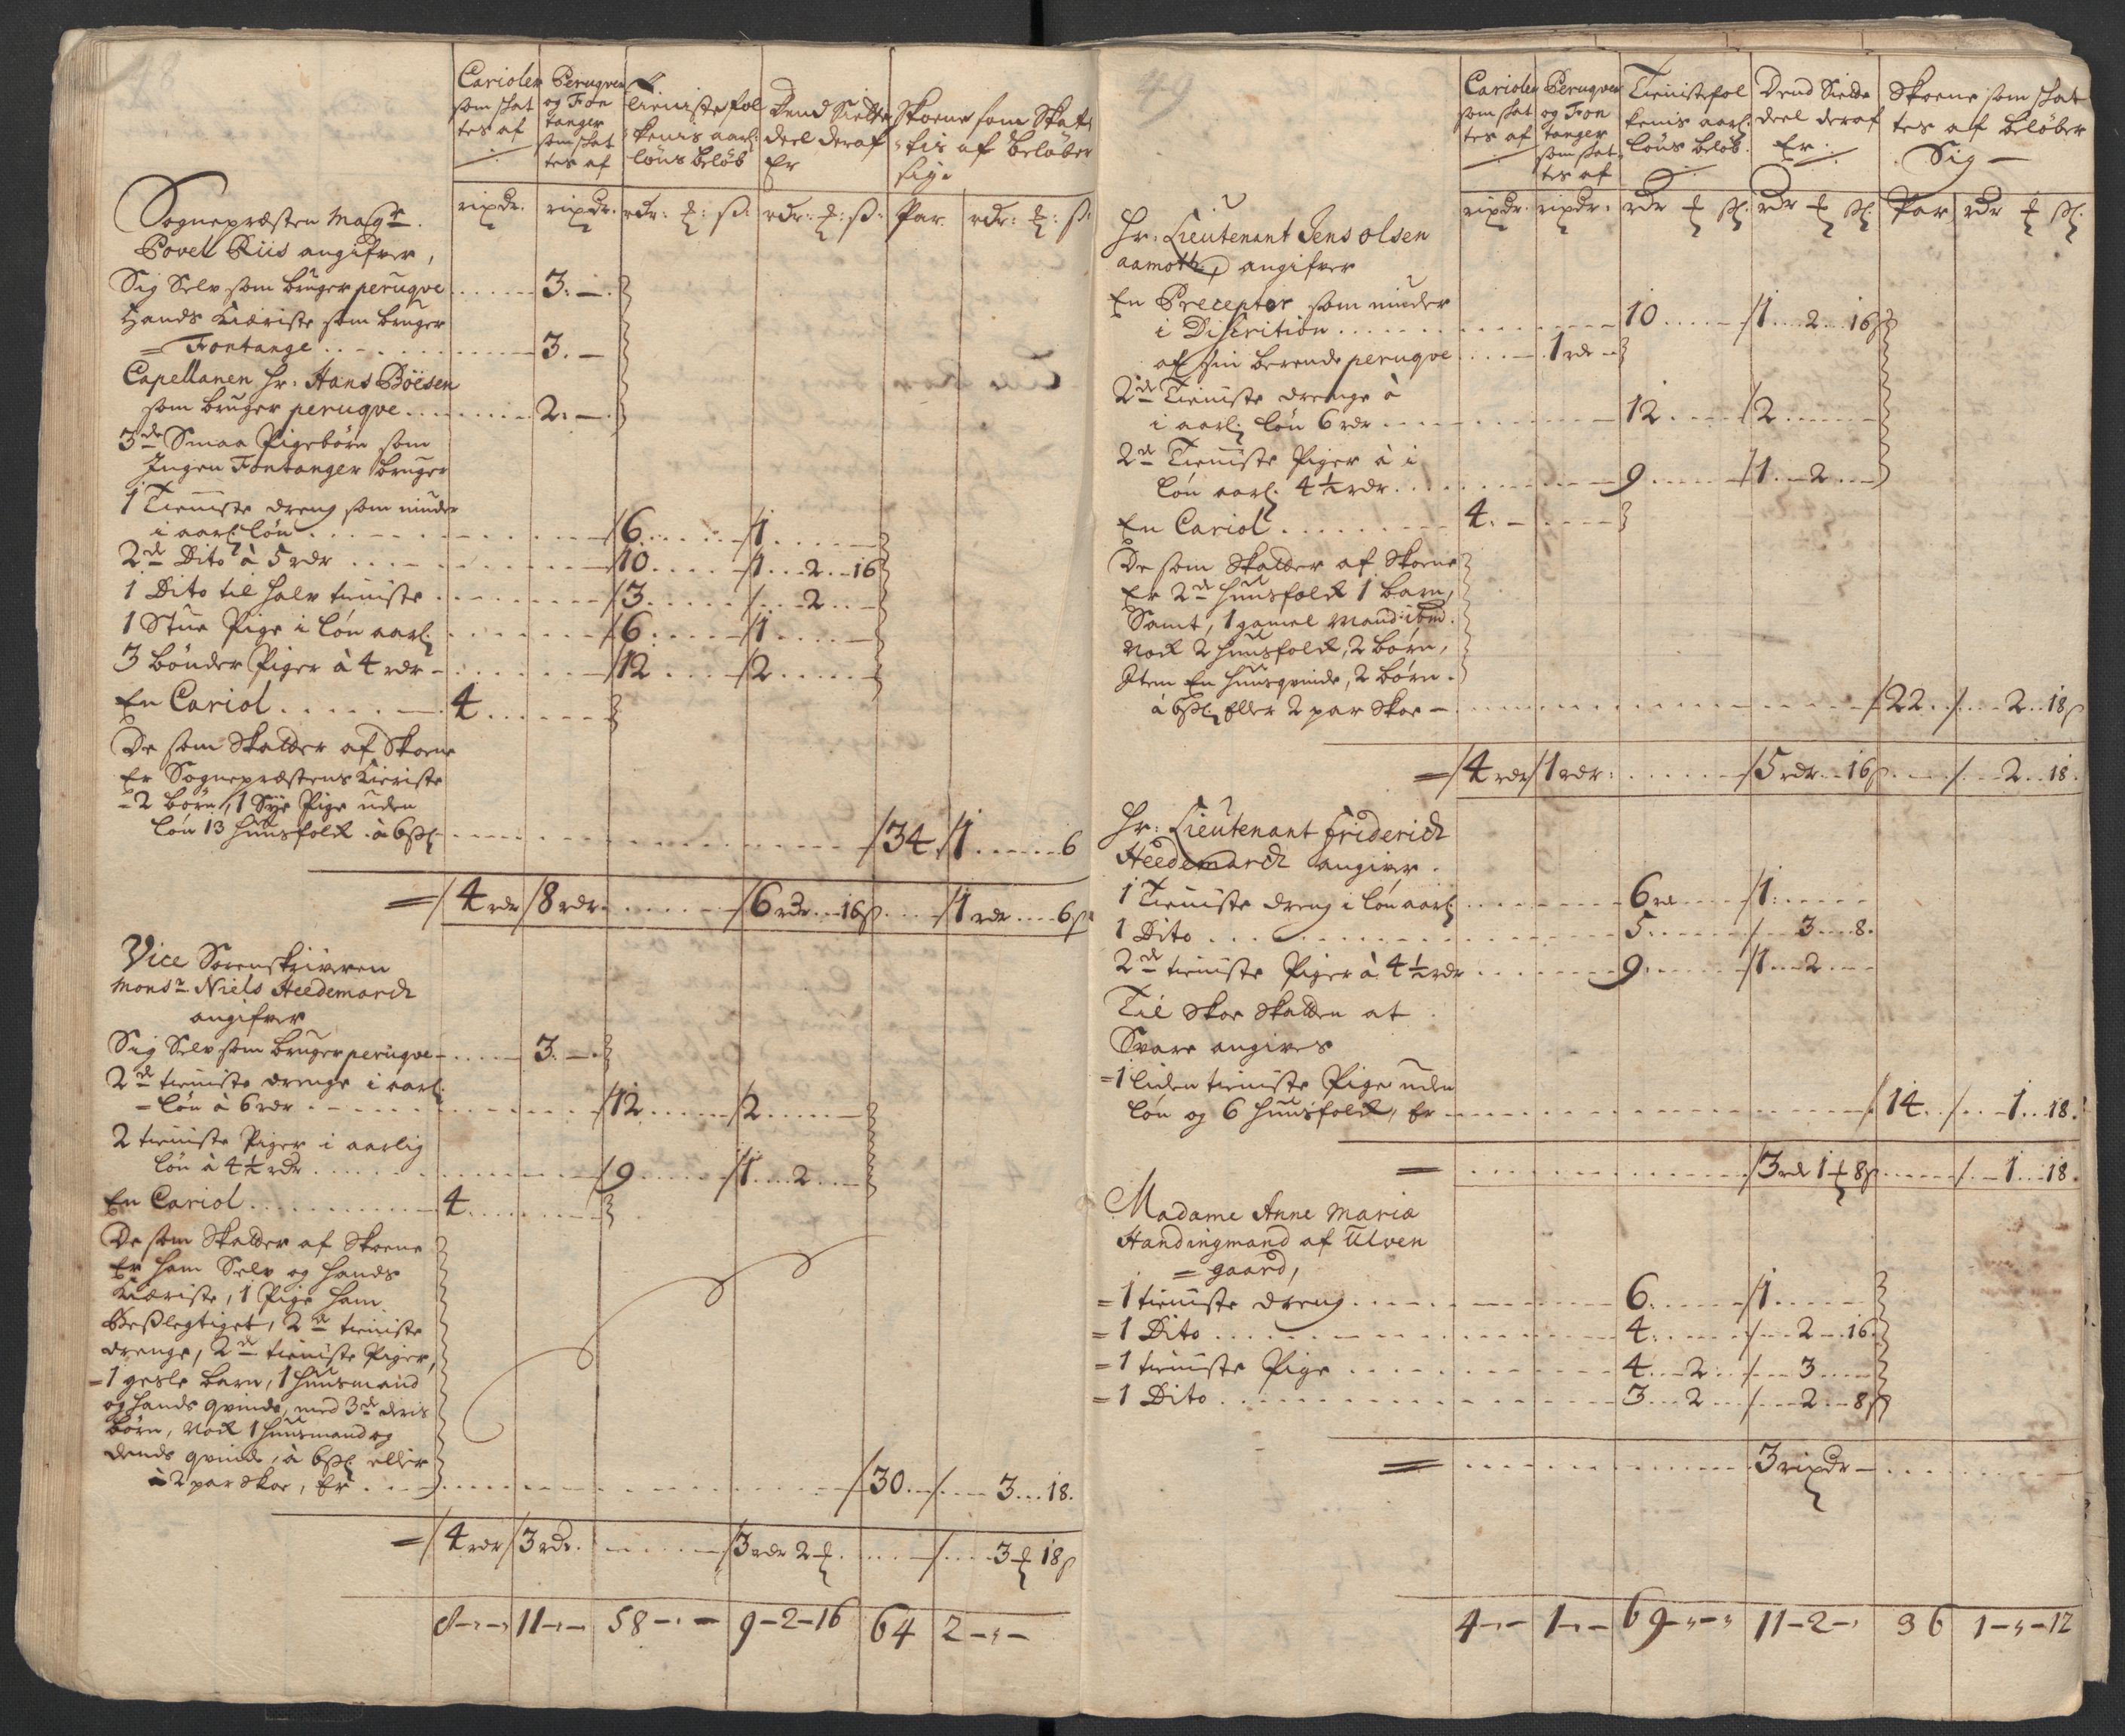 Carioler som skattes af
Perugver og Fontanger som skattes af
Tienistefolckenis aarl: löns belöb
Dend Siette deel deraf Er
Skoene som Skattis af belöber sig.
rixdr. rixdr. rdr: ß: rdr: ß: Par. rdr: ß:
Sognepræsten Magr.
Povel Riis angifver,
Sig Selv som bruger peruqve ...... 3. —
Hands Kiæriste som bruger
= Fontange ...... 3. —
Capellanen Hr: Hans Böesen
som bruger peruqve ...... 2. —
3de Smaa Pigebörn som
Ingen Fontanger bruger
1 Tieniste dreng som nÿder
i aarl: lön ...... 6 ...... 1 ......
2de Dito à 5 rdr ...... 10 ...... 1 ... 2 .. 16
1 Dito til halv tieniste ...... 3 ...... 2 ..
1 Stue Pige i lön aarl: ...... 6 ...... 1 ......
3 bönder Piger à 4 rdr - ...... 12 ...... 2 ......
En Cariol ...... 4 ......
De som Skatter af Skoene
Er Sognepræstens Kieriste
= 2 börn, 1 Sÿe Pige uden
lön 13 huusfolck à 6ßl ...... 34 1 ...... 6
= 4 rdr 8 rdr. ...... 6 rdr ... 16ß ...... 1 rdr .... 6ß
Vice Sorenskriveren
Monsr. Niels Heedemarck
angifver
Sig Selv som bruger peruqve - ...... 3. —
2de tieniste drenge i aarl:
= lön à 6 rdr ...... 12 ...... 2 ......
2 tieniste Piger i aarlig
lön à 4½ rdr ...... 9 ...... 1 .... 2 ....
En Cariol ...... 4 ......
De som Skatter af Skoene
Er ham Selv og hands
Kiæriste, 1 Pige ham
Beslegtiget, 2de tieniste
drenge, 2de tieniste Piger,
= 1 gesle barn, 1 huusmand
og hands qvinde, med 3de deris
börn, Nock 1 huusmand og
dends qvinde, à 6ßl eller
à 2 par Skoe, Er ...... 30 ...... 3 ... 18.
= 4 rdr 3 rdr. ...... 3 rdr 2 ...... 3 18ß
8-,- 11-,- 58-,- 9-2-16 64 2-,-
49
Carioler som skattes af
Perugver og Fontanger som skattes af
Tienistefolckenis aarl: löns belöb.
Dend Siette deel deraf Er
Skoene som skattes af belöber Sig —
rixdr. rixdr. rdr ßl. rdr ßl. Par rdr ßl.
Hr: Lieutenant Jens Olsen
aamoth, angifver
En Preceptor som nÿder
i Discrition ...... 10 ...... 1 ... 2 ... 16ß
af sin berende peruqve ...... 1 rdr
2de Tieniste drenge à
i aarl: lön 6 rdr ...... 12 ...... 2 ......
2de Tieniste Piger à i
lön aarl. 4½ rdr ...... 9 ...... 1 ... 2 ...
En Cariol ...... 4. —
De som Skatter af Skoene
Er 2de huusfolck 1 barn,
Samt, 1 gamel Mand: ibid.
Nock 2 huusfolck, 2 börn,
Item En huusqvinde, 2 börn.
à 6ßl eller 2 par Skoe — ...... 22 ...... 2 .. 18ß
= 4 rdr 1 rdr: ...... 5 rdr .. 16ß ...... 2 .. 18.
Hr: Lieutenant Friderich
Heedemarck angiver.
1 Tieniste dreng i lön aarl: ...... 6 rd ...... 1 ......
1 Dito ...... 5 ...... 3 ... 8.
2de tieniste Piger à 4½ rdr ...... 9 ...... 1 ... 2 ...
Til Skoe Skatten at
Svare angives
= 1 liden tieniste Pige uden
lön og 6 huusfolck, Er ...... 14 ...... 1 ... 18.
= ...... 3 rdr 1 8ß ...... 1 ... 18.
Madame Anne Maria
Handingmand af Ulven
= gaard,
= 1 tieniste dreng ...... 6 ...... 1 ......
= 1 Dito ...... 4 ...... 2 ... 16.
= 1 tieniste Pige ...... 4 ... 2 ...... 3 ....
= 1 Dito ...... 3 ... 2 ...... 2 ... 8ß
= ...... 3 rixdr — ......
4-,- 1-,- 69-,-, 11-2-, 36 1-,-12